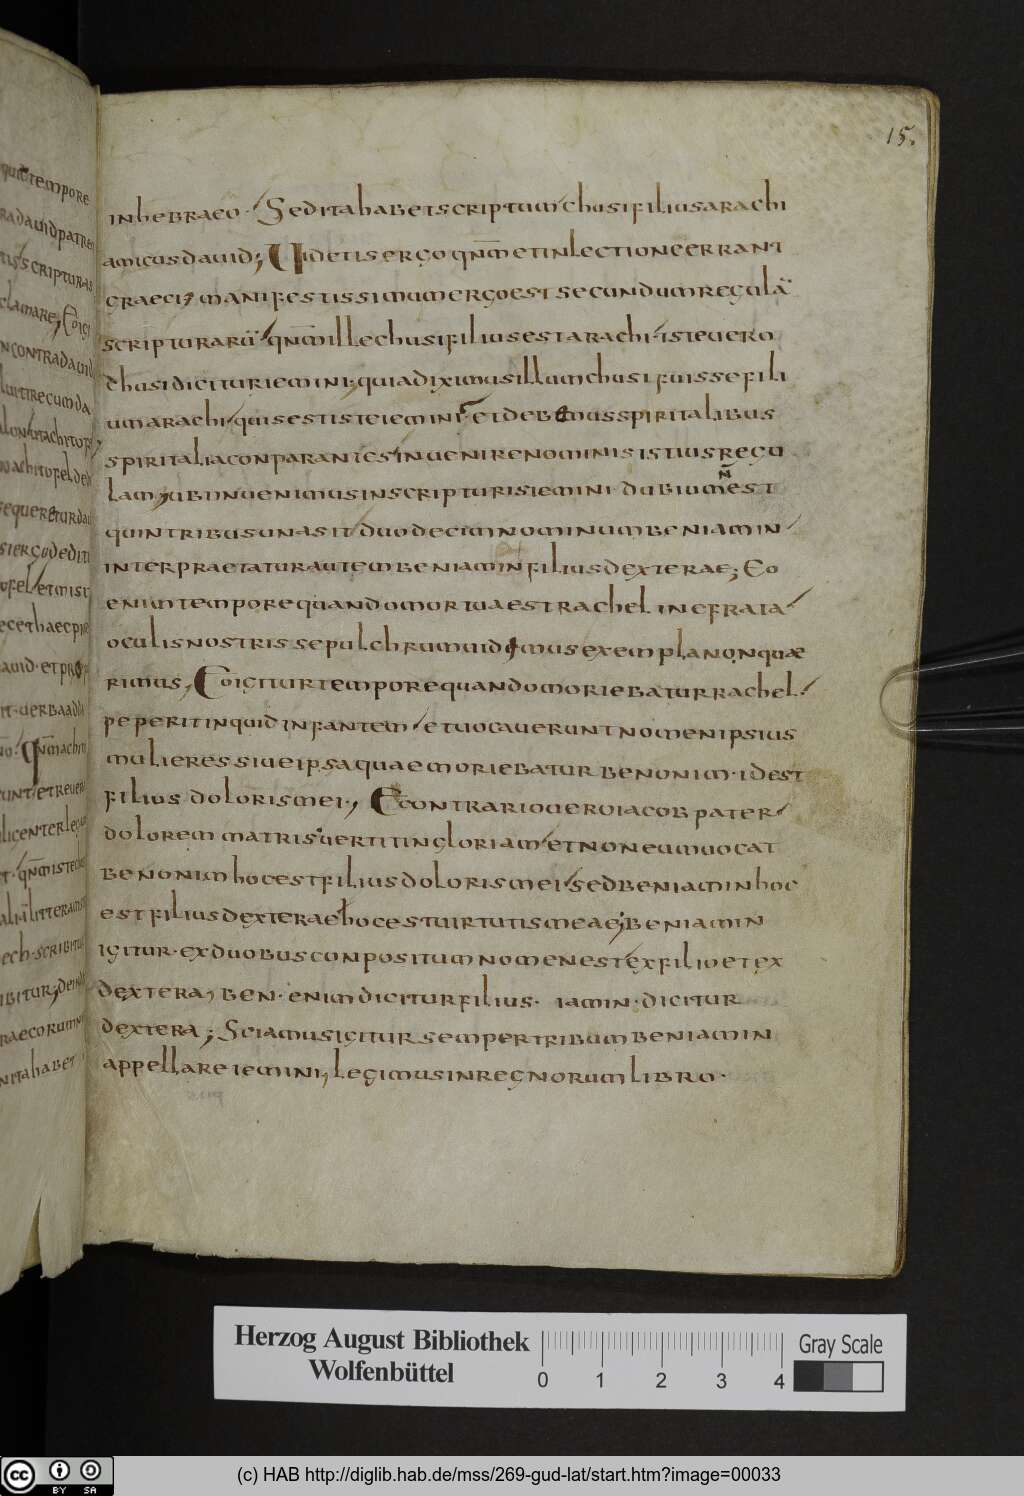 15.
inhebraeo. Sed ita habet scriptum chusi filius arachi
amicus dauid; Uidetis ergo qnm̄ et in lectione errant
graeci, manifestissimum ergo est secundum regulā
scripturarū qnm̄ ille chusi filius est arachi. iste uero
chusi dicitur iemini, quia diximus illum chusi fuisse fili
um arachi quis est iste iemini et debemus spiritalibus
spiritalia conparantes inuenire nominis istius regu
lam, ubi inuenimus in scripturis iemini dubium n̄ est
quin tribus una sit duodecim nominum beniamin
interpraetatur autem beniamin filius dexterae; Eo
enim tempore quando mortua est rachel in efrata
oculis nostris sepulchrum uidimus exempla non quae
rimus, Eo igitur tempore quando moriebatur rachel.
peperit inquid infantem et uocauerunt nomen ipsius
mulieres siue ipsa quae moriebatur benonim. id est
filius doloris mei, Econtrario uero iacob pater
dolorem matris uertit in gloriam et non eum uocat
benonim hoc est filius doloris mei sed beniamin hoc
est filius dexterae hoc est uirtutis meae; beniamin
igitur. ex duobus conpositum nomen est ex filio et ex
dextera, ben. enim dicitur filius. iamin. dicitur
dextera; Sciamus igitur semper tribum beniamin
appellare iemini, legimus in regnorum libro.
Herzog August Bibliothek
Wolfenbüttel
0 1 2 3 4
Gray Scale
cc BY SA
(c) HAB http://diglib.hab.de/mss/269-gud-lat/start.htm?image=00033